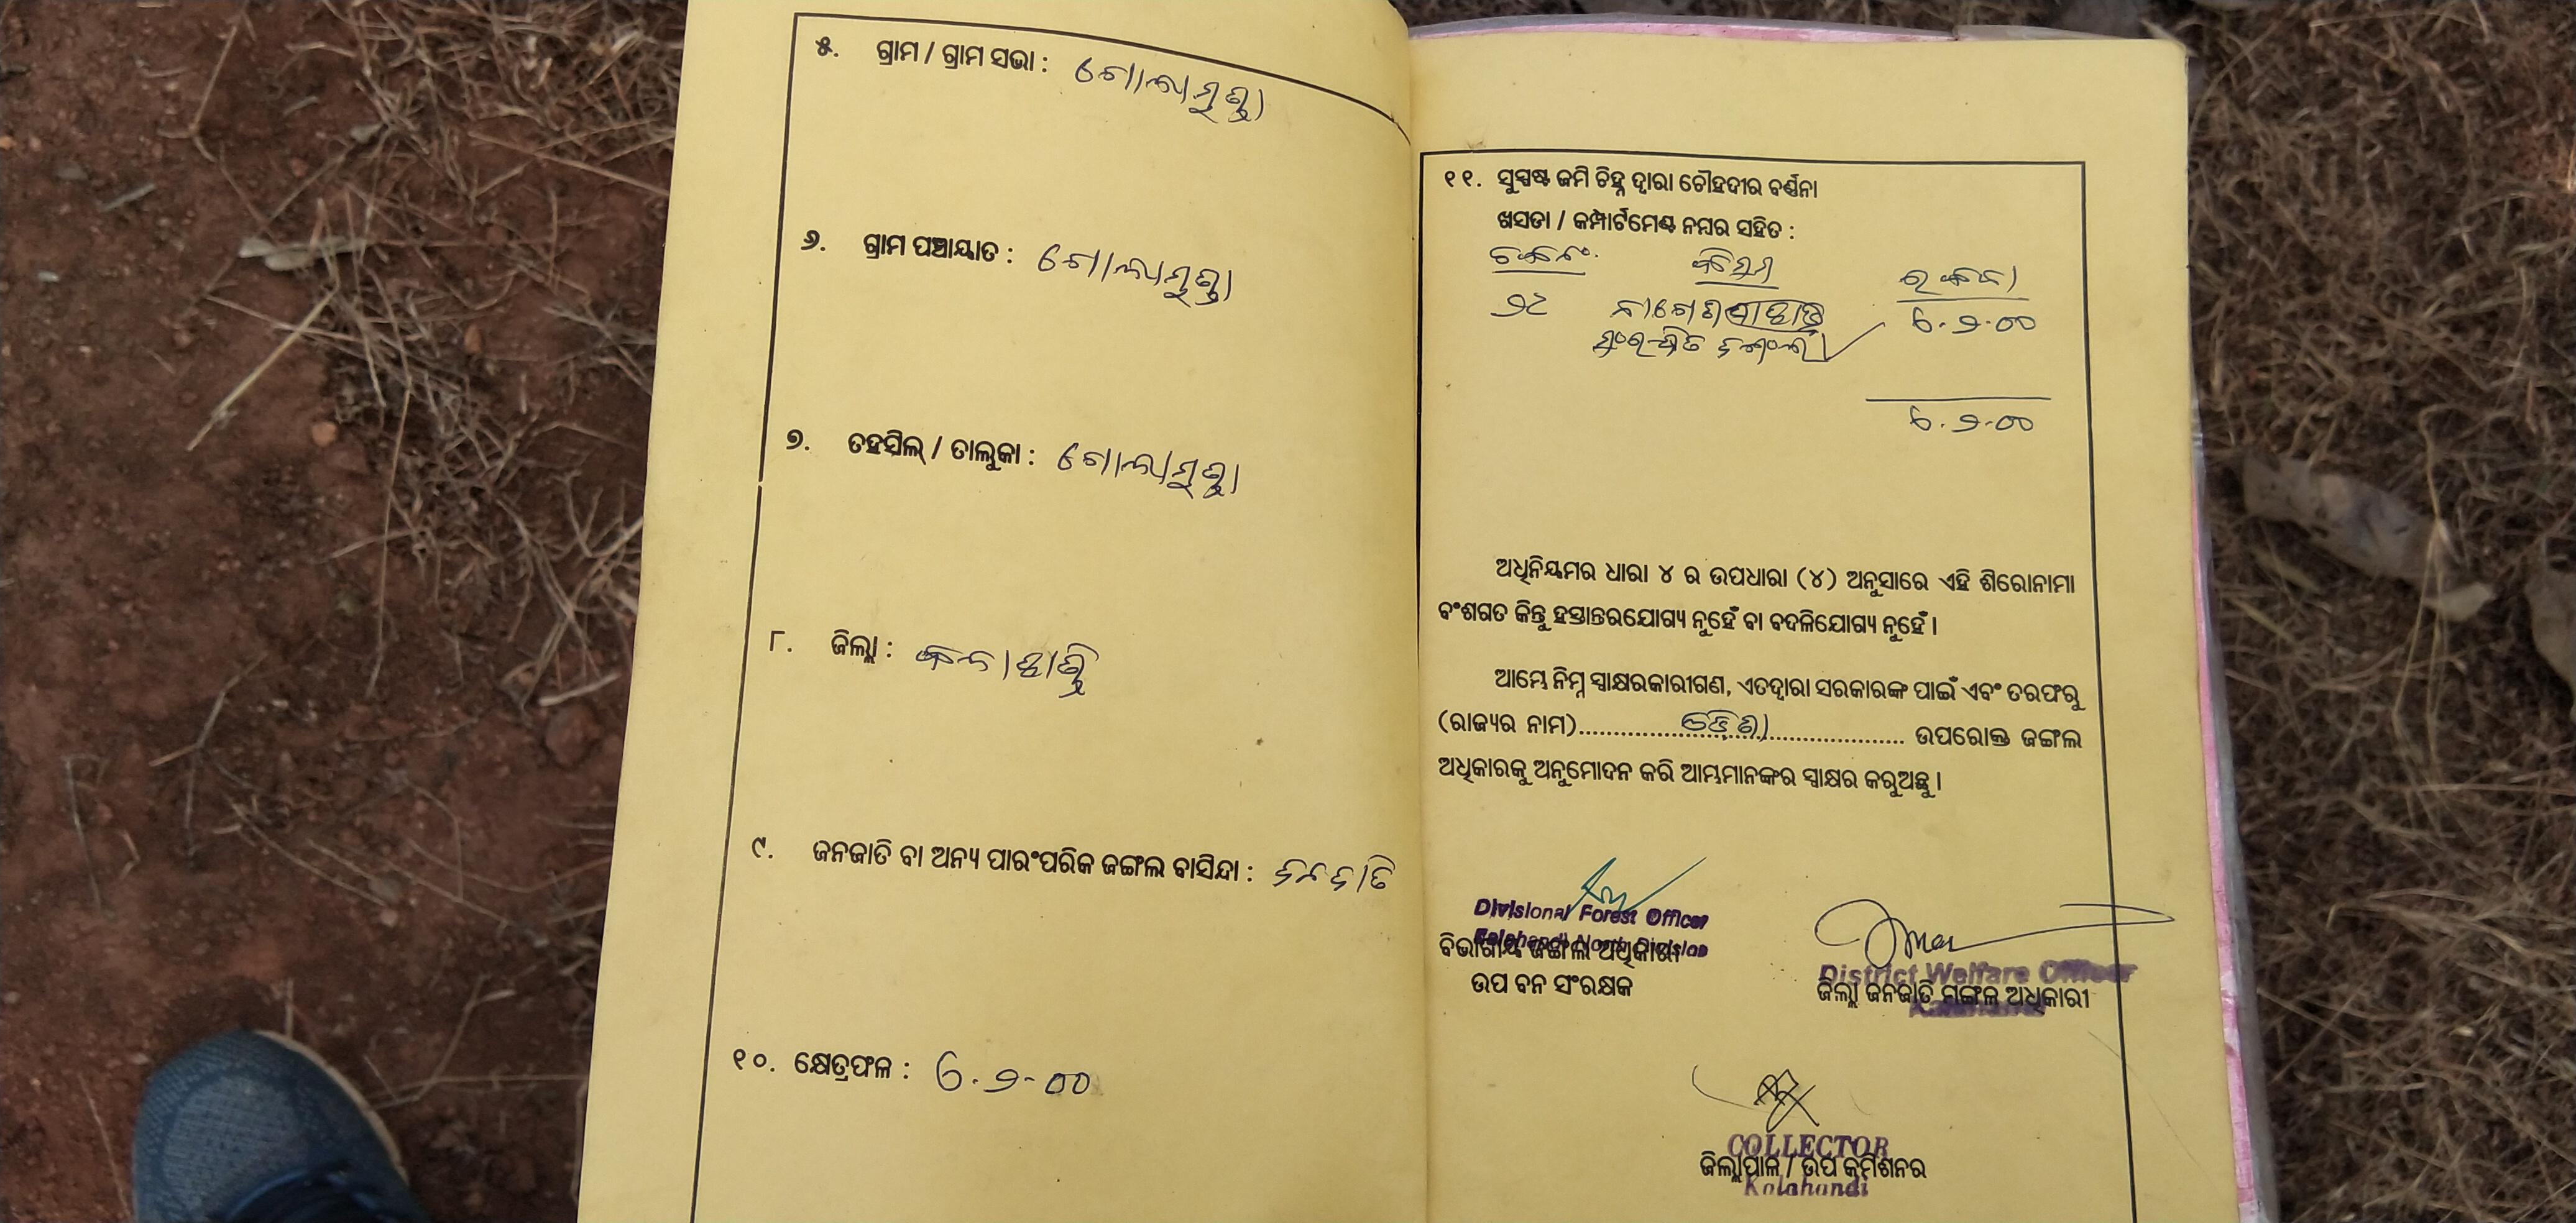 ୫. ଗ୍ରାମ / ଗ୍ରାମ ସଭା : ଗୋଲାମୁଣ୍ଡା
୬. ଗ୍ରାମ ପଞ୍ଚାୟାତ : ଗୋଲାମୁଣ୍ଡା
୭. ତହସିଲ୍ / ତାଲୁକା : ଗୋଲାମୁଣ୍ଡା
୮. ଜିଲ୍ଲା : କଳାହାଣ୍ଡି
୯. ଜନଜାତି ବା ଅନ୍ୟ ପାରଂପରିକ ଜଙ୍ଗଲ ବାସିନ୍ଦା : ଜନଜାତି
୧୦. କ୍ଷେତ୍ରଫଳ : ୦-୨-୦୦
୧୧. ସୁସ୍ପଷ୍ଟ ଜମି ଚିହ୍ନ ଦ୍ୱାରା ଚୌହଦୀର ବର୍ଣ୍ଣନା
ଖସଡା / କମ୍ପାର୍ଟମେଣ୍ଟ ନମ୍ବର ସହିତ :
କିସମ ରକବା
ସଂରକ୍ଷିତ ଜଙ୍ଗଲ
ଅଧିନିୟମର ଧାରା ୪ ର ଉପଧାରା (୪) ଅନୁସାରେ ଏହି ଶିରୋନାମା
ବଂଶଗତ କିନ୍ତୁ ହସ୍ତାନ୍ତରଯୋଗ୍ୟ ନୁହେଁ ବା ବଦଳିଯୋଗ୍ୟ ନୁହେଁ ।
ଆମ୍ଭେ ନିମ୍ନ ସ୍ୱାକ୍ଷରକାରୀଗଣ, ଏତଦ୍ୱାରା ସରକାରଙ୍କ ପାଇଁ ଏବଂ ତରଫରୁ
(ରାଜ୍ୟର ନାମ)........ଓଡ଼ିଶା........ ଉପରୋକ୍ତ ଜଙ୍ଗଲ
ଅଧିକାରକୁ ଅନୁମୋଦନ କରି ଆମ୍ଭମାନଙ୍କର ସ୍ୱାକ୍ଷର କରୁଅଛୁ ।
Divisional Forest Officer
Kalahandi North Division
ବିଭାଗୀୟ ଜଙ୍ଗଲ ଅଧିକାରୀ
ଉପ ବନ ସଂରକ୍ଷକ
District Welfare Officer
ଜିଲ୍ଲା ଜନଜାତି ମଙ୍ଗଳ ଅଧିକାରୀ
COLLECTOR
ଜିଲ୍ଲାପାଳ / ଉପ କମିଶନର
Kalahandi